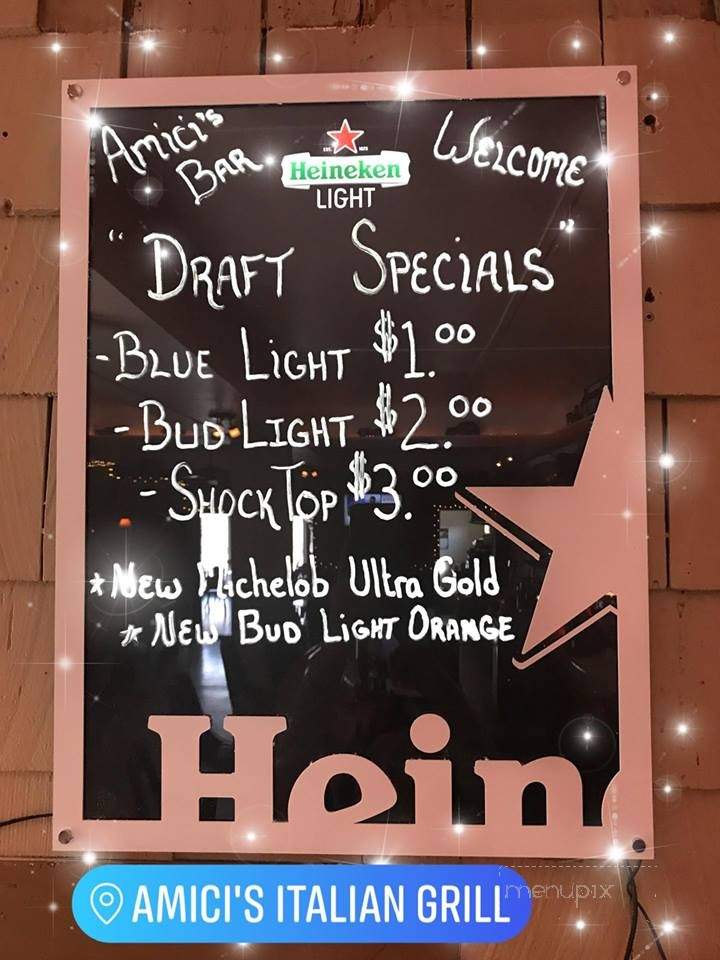 Amici's Bar
Heineken
LIGHT
WELCOME
"DRAFT SPECIALS"
- BLUE LIGHT $1.00
- BUD LIGHT $2.00
- SHOCK TOP $3.00
* New Michelob Ultra Gold
* NEW BUD LIGHT ORANGE
Hein
AMICI'S ITALIAN GRILL
menupix